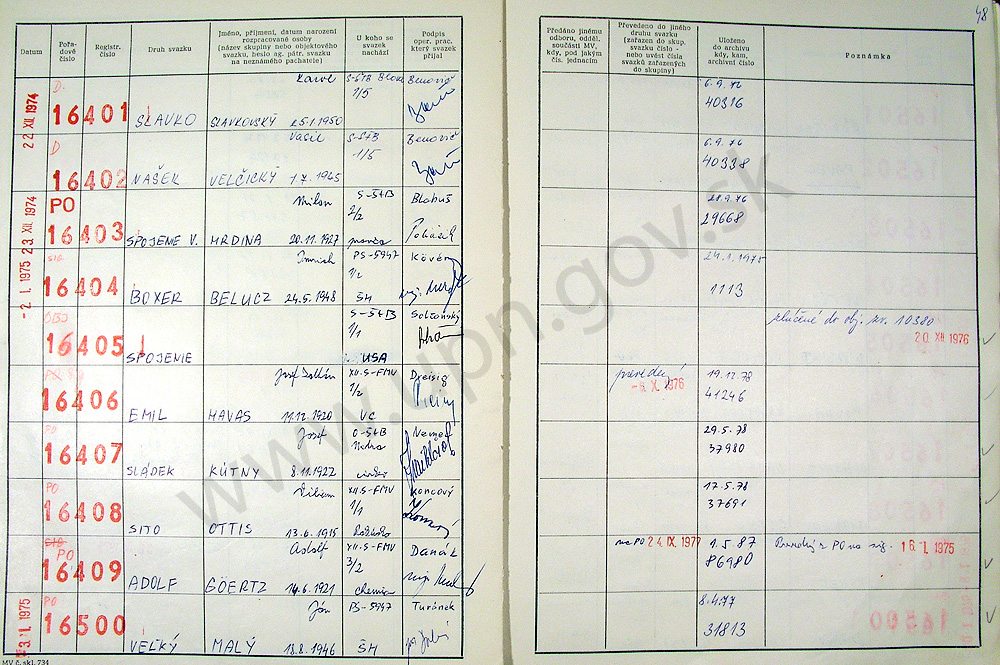 48
Datum
Pořadové číslo
Registr. číslo
Druh svazku
Jméno, příjmení, datum narození rozpracované osoby (název skupiny nebo objektového svazku, beslo ag. pátr. svazku na neznámého pachatele)
U koho se svazek nachází
Podpis oper. prac. který svazek přijal
Předáno jinému odboru, odděl. součásti MV, kdy, pod jakým čís. jednacím
Převedeno do jiného druhu svazku (zařazen do skup. svazku číslo - nebo uvést čísla svazků zařazených do skupiny)
Uloženo do archivu kdy, kam, archivní číslo
Poznámka
22 XII 1974
D.
16401
SLAVKO
Karol
SLAVKOVSKÝ 25.1.1950
S-ŠTB
1/5
Benovič
6.9.76
40316
D
16402
NAŠEK
Vasil
VELČICKÝ 1.7.1945
S-ŠTB
1/5
Benovič
6.9.76
40338
23 XII 1974
PO
16403
SPOJENE V.
Milan
HRDINA 20.11.1927
S-ŠTB
2/2
Blahuš
21.9.76
29668
-2. I. 1975
SIG.
16404
BOXER
Imrich
BELUCZ 24.5.1948
PS-5947
1/2
ŠH
Kövér
24.1.1975
1113
16405
SPOJENIE
S-ŠTB
1/1
USA
zlučené do obj. zv. 10380
20 XII 1976
16406
EMIL
Jozef Zoltán
HAVAS 11.12.1920
XII.S-FMV
1/2
VC
Dreisig
prevedený
-6. X. 1976
19.12.78
41246
PO
16407
SLÁDEK
Jozef
KÚTNY 8.11.1922
Nemec
29.5.78
37980
PO
16408
SITO
Viliam
OTTIS 13.6.1915
XII.S-FMV
1/1
Koncový
17.5.78
37691
SIG
PO
16409
ADOLF
Adolf
GOERTZ 14.6.1921
XII.S-FMV
3/2
chemia
Danák
na PO 24 IX. 1977
1.5.87
86980
16 I. 1975
31. I. 1975
PO
16500
VEĽKÝ
Ján
MALÝ 18.8.1946
PS-5947
ŠH
Turánek
8.4.77
31813
MV č. skl. 734
www.upn.gov.sk